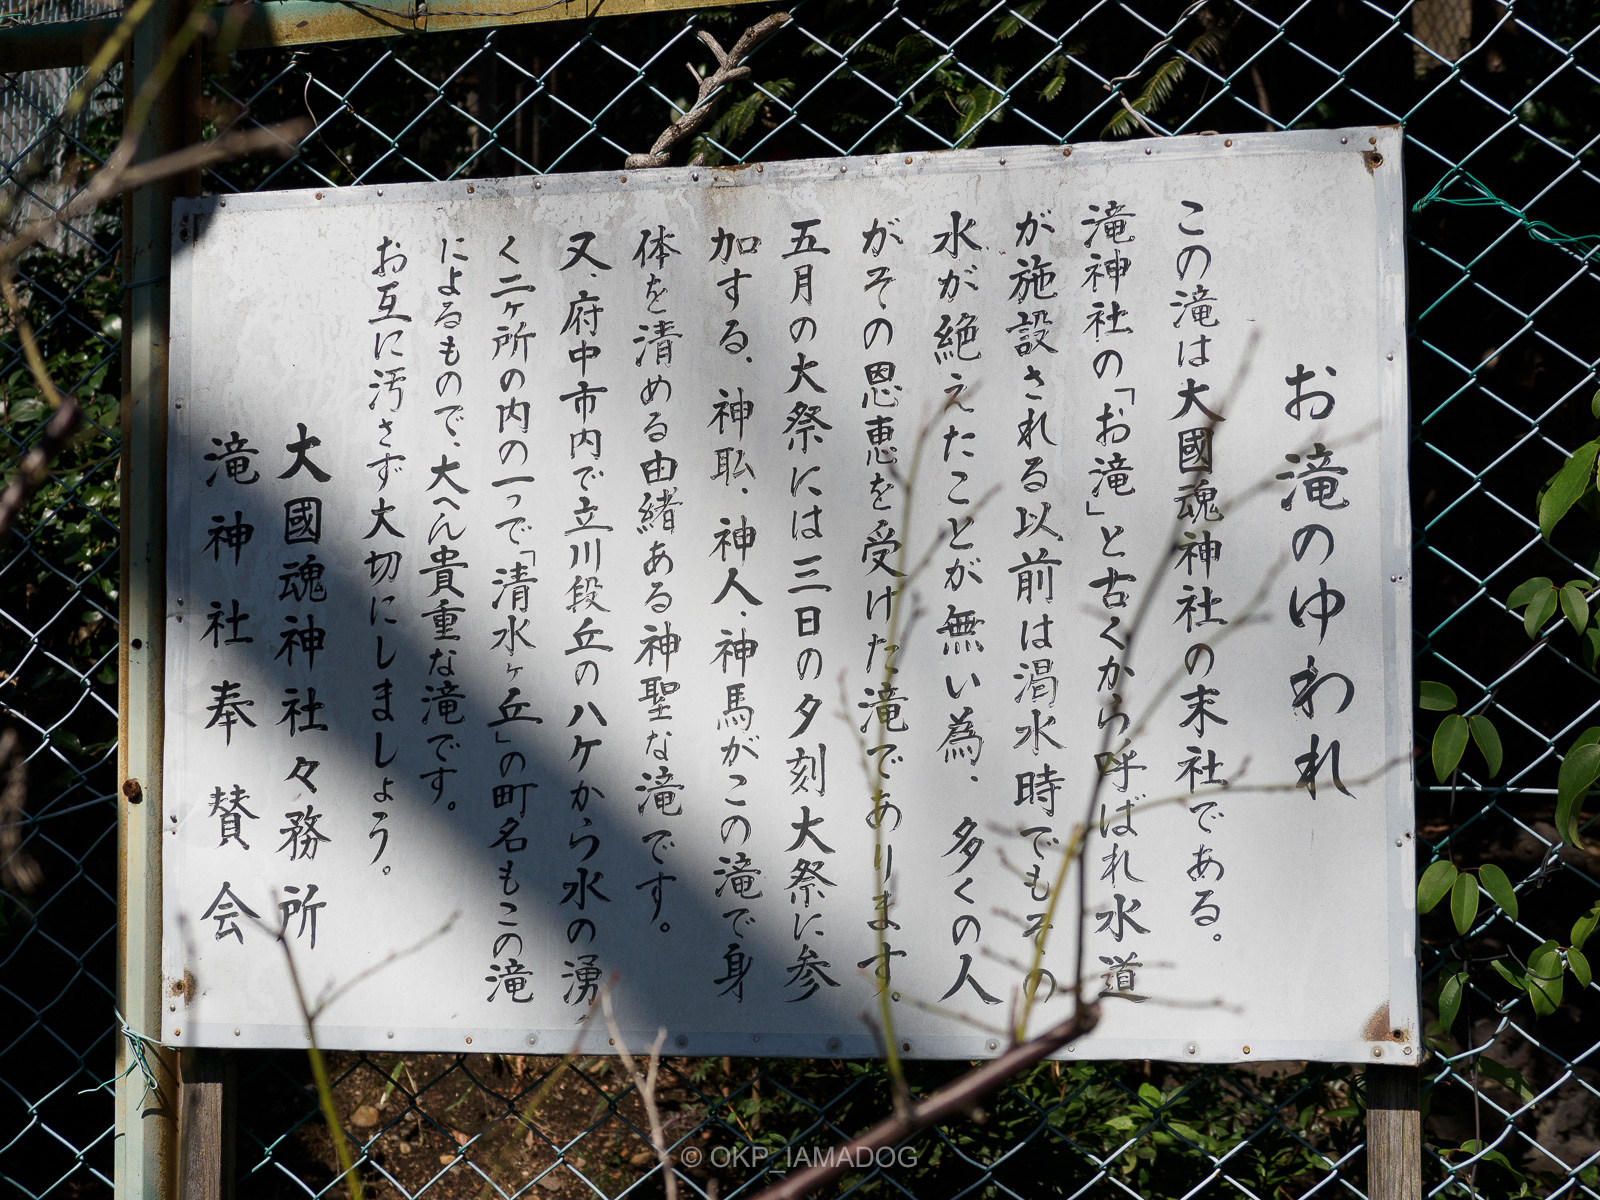 お滝のゆわれ
この滝は大國魂神社の末社である。
滝神社の「お滝」と古くから呼ばれ水道
が施設される以前は渇水時でもその
水が絶えたことが無い為、多くの人
がその恩恵を受けた滝であります。
五月の大祭には三日の夕刻大祭に参
加する、神𦔮、神人、神馬がこの滝で身
体を清める由緒ある神聖な滝です。
又、府中市内で立川段丘のハケから水の湧
く二ヶ所の内の一つで「清水ヶ丘」の町名もこの滝
によるもので、大へん貴重な滝です。
お互に汚さず大切にしましょう。
大國魂神社々務所
滝神社奉賛会
© OKP_IAMADOG